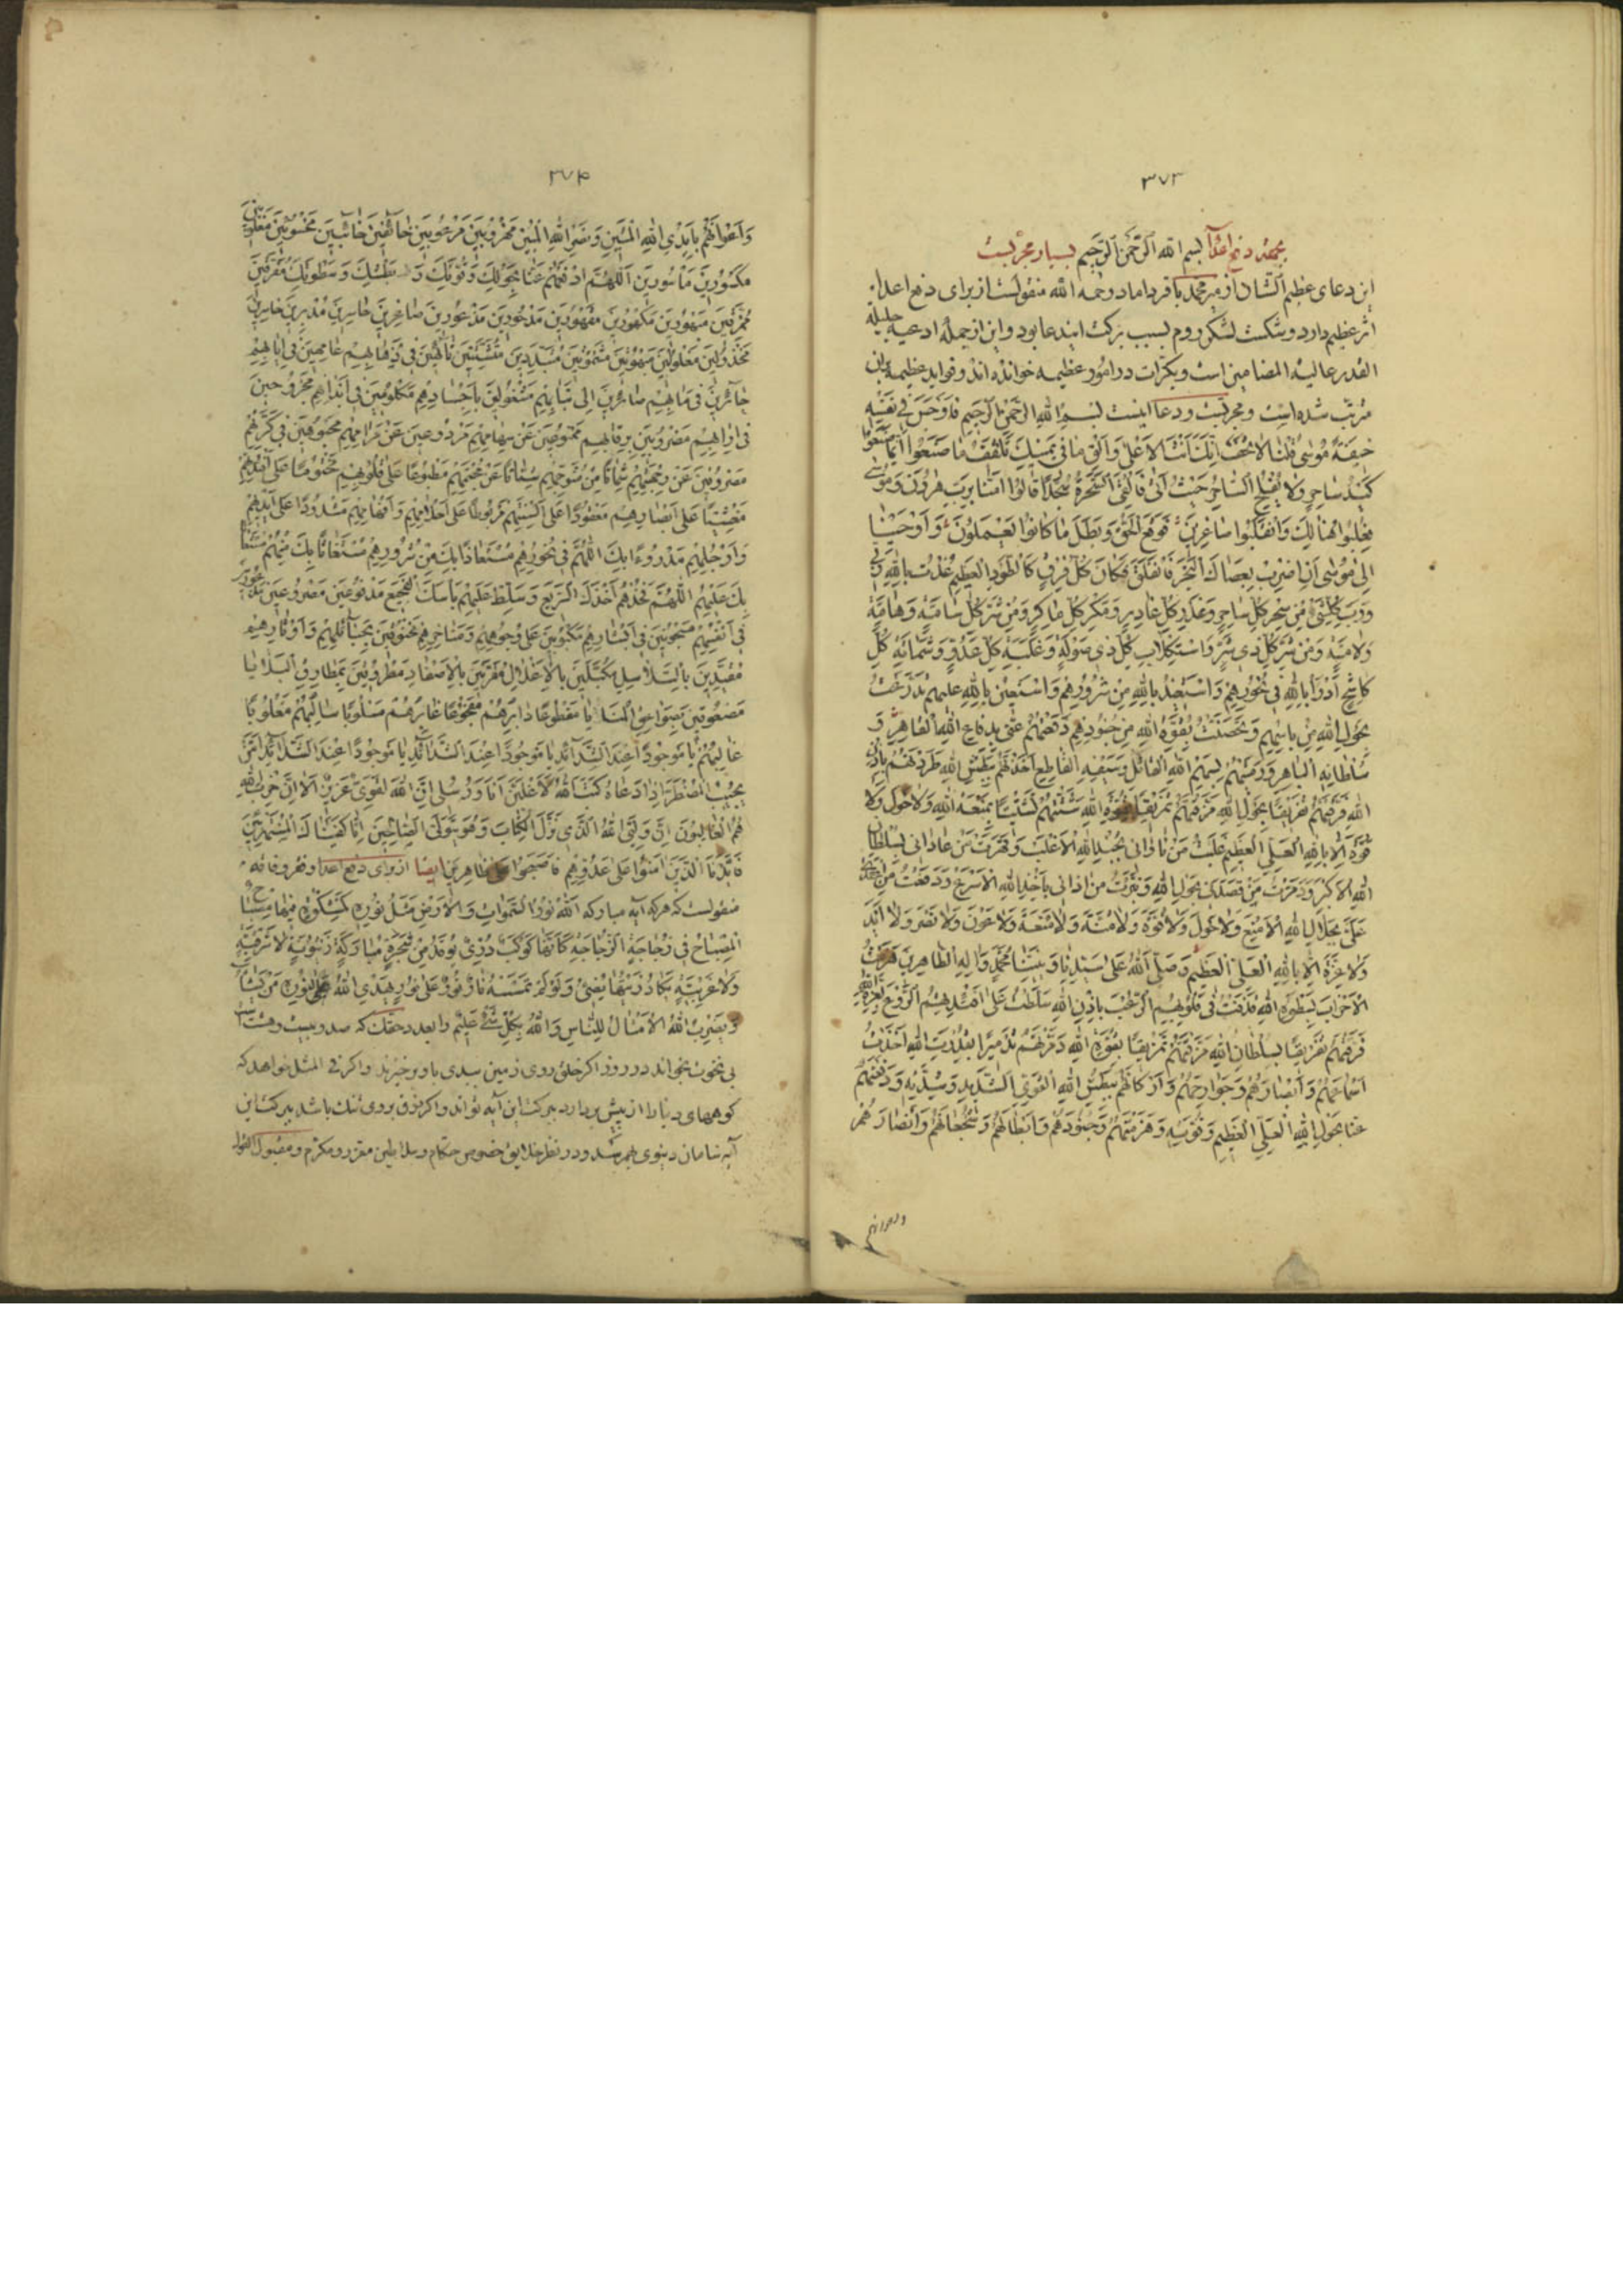 ۳۷۳
بجهة دفع اعدا بسم الله الرحمن الرحیم بسیار مجربست
این دعای عظیم الشان از میر محمد باقر داماد رحمه الله منقولست از برای دفع اعدا
اثر عظیم دارد و شکست لشکر روم بسبب برکت ایندعا بود و این از جمله ادعیه جلیلة
القدر عالیة المضامین است و بکرات در امور عظیمه خوانده اند و فواید عظیمه بران
مرتب شده است و مجربست و دعا اینست بسم الله الرحمن الرحیم فاوجس فی نفسه
خیفة موسی قلنا لا تخف انک انت الاعلی والق ما فی یمینک تلقف ما صنعوا انما صنعوا
کید ساحر ولا یفلح الساحر حیث اتی فالقی السحرة سجدا قالوا امنا برب هرون وموسی
فغلبوا هنالک وانقلبوا صاغرین فوقع الحق وبطل ما کانوا یعملون واوحینا
الی موسی ان اضرب بعصاک البحر فانفلق فکان کل فرق کالطود العظیم عذت بالله ربی
ورب کلشیء من سحر کل ساحر وغدر کل غادر ومکر کل ماکر ومن شر کل سامة وهامة
ولامة ومن شر کل ذی شر واستکلاب کل ذی صولة وغلبة کل عدو وشماتة کل
کاشح ادرأ بالله فی نحورهم واستعیذ بالله من شرورهم واستعین بالله علیهم تدرعت
بحول الله من باسهم وتحصنت بقوة الله من جنودهم دفعتهم عنی بدفاع الله القاهر و
سلطانه الباهر ورمیتهم بسهم الله القاتل وسیفه القاطع اخذتهم ببطش الله طردتهم باذن
الله فرقتهم تفریقا بحول الله مزقتهم تمزیقا بقوة الله شتتهم تشتیتا بمنعة الله ولا حول ولا
قوة الا بالله العلی العظیم غلبت من ناوانی بجند الله الاغلب وقهرت من عادانی بسلطان
الله الاکبر ودحرت من قصدنی بحول الله وتبرت من اذانی باخذ الله الاسرع ودفعت من
علی بجلال الله الامنع ولا حول ولا قوة ولا منة ولا منعة ولا عون ولا نصر ولا اید
ولا عزة الا بالله العلی العظیم وصلی الله علی سیدنا ونبینا محمد واله الطاهرین هزمت
الاحزاب بسطوة الله قذفت فی قلوبهم الرعب باذن الله سلطت علی افئدتهم الروع بعزة الله
فرقتهم تفریقا بسلطان الله مزقتهم تمزیقا بقوة الله دمرتهم تدمیرا بقدرت الله اخذت
اسماعهم وابصارهم وجوارحهم وارکانهم ببطش الله القوی الشدید وشدته ودفعتهم
عنا بحول الله العلی العظیم وقوته وهزمتهم وجنودهم وابطالهم وشجعانهم وانصارهم
واعوانهم
۳۷۴
واعوانهم باید الله المتین ونصر الله المبین مهزوبین مرعوبین خائفین خائبین مخسوئین مغلوبین
مکسورین ماسورین اللهم ادفعهم عنا بحولک وقوتک و بطشک وسطوتک مفرقین
ممزقین مبهورین مکهورین مقهورین مدحورین مذعورین صاغرین خاسرین مدبرین خاسرین
مخذولین مغلولین مبهوتین مشموتین متبددین متشتتین تائهین فی ذهابهم عامهین فی ایابهم
حائرین فی مابهم صائرین الی تبابهم مشغولین باجسادهم مکلومین فی ابدانهم مجروحین
فی ارابهم مضروبین برقابهم ممنوعین عن سهامهم مردوعین عن مرامهم مجبوهین فی کرهم
مصروفین عن وجهتهم مختوما علی افئدتهم مطبوعا علی قلوبهم
مغشیا علی ابصارهم معقودا علی السنتهم مربوطا علی احلامهم وافهامهم مشدودا علی ایدیهم
وارجلهم مدروءا بک اللهم فی نحورهم مستعاذا بک من شرورهم مستغاثا بک منهم مستعانا
بک علیهم اللهم خذهم اخذک السریع وسلط علیهم باسک الفجیع مدفوعین مصروعین
فی انفسهم مسحوبین فی ابشارهم مکبوبین علی وجوههم ومناخرهم مخنوقین بحبائلهم واوتارهم
مقیدین بالسلاسل مکبلین بالاغلال مقرنین بالاصفاد مطروقین بمطارق البلایا
مصعوقین بصواعق المنایا مقطوعا دابرهم مفجوعا غابرهم مسلوبا سالبهم مغلوبا
غالبهم یا موجودا عند الشدائد یا موجودا عند الشدائد یا موجودا عند الشدائد امن
یجیب المضطر اذا دعاه کتب الله لاغلبن انا ورسلی ان الله لقوی عزیز الا ان حزب الله
هم الغالبون ان ولیی الله الذی نزل الکتاب وهو یتولی الصالحین انا کفیناک المستهزئین
فایدنا الذین امنوا علی عدوهم فاصبحوا ظاهرین ایضا از برای دفع اعدا و فقر و فاقه
منقولست که هرکه آیه مبارکه الله نور السموات والارض مثل نوره کمشکوة فیها مصباح
المصباح فی زجاجة الزجاجة کانها کوکب دری یوقد من شجرة مبارکة زیتونة لا شرقیة
ولا غربیة یکاد زیتها یضیء ولو لم تمسسه نار نور علی نور یهدی الله لنوره من یشاء
ویضرب الله الامثال للناس والله بکل شیء علیم را بعدد حقک که صد و بیست و هشت است
بخواند در روز اگر خلق روی زمین ببدی باو برخیزند و اگر فی المثل خواهد که
کوههای دنیا را از پیش بردارد ببرکت این آیه تواند و اگر رزق بر وی تنک باشد ببرکت این
آیه سامان دنیوی بهم رسد و در نظر خلایق خصوص حکام و سلاطین معزز و مکرم و مقبول القول